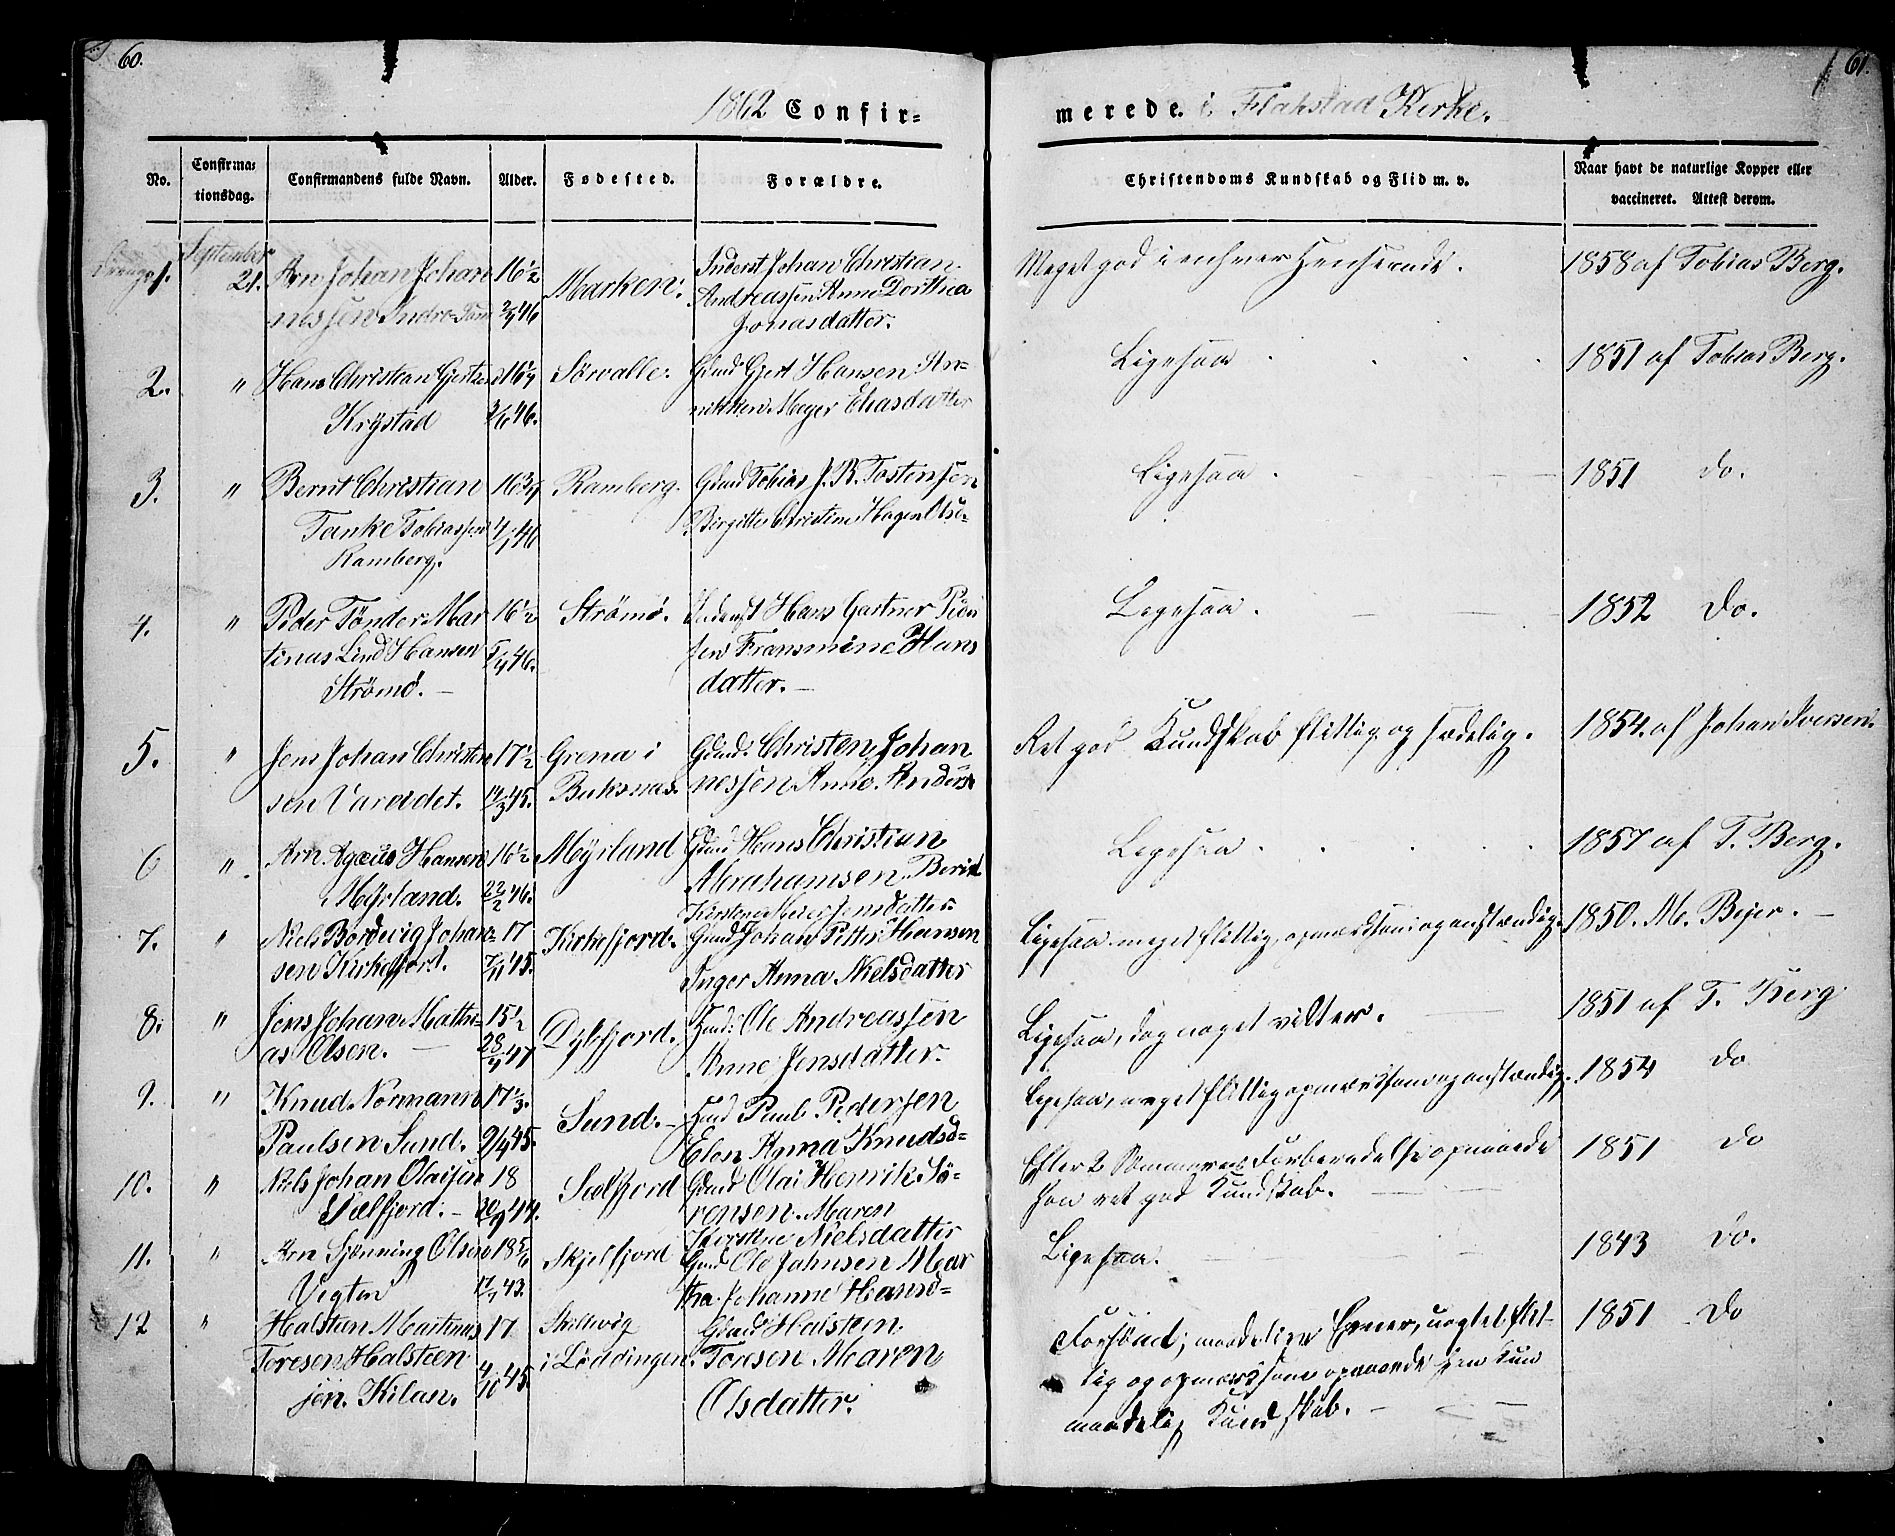 60.
61.
1862 Confir-
merede. i Flakstad Kirke.
No.
Confirma-
tionsdag.
Confirmandens fulde Navn.
Alder.
Fødested.
Forældre.
Christendoms Kundskab og Flid m. v.
Naar havt de naturlige Kopper eller
vaccineret. Attest derom.
Drenge 1.
September
21.
Arn Johan Johan
nessen Indre-
16½
2/9 46
Marken.
Inderst Johan Christian
Andreassen Anne Dorthea
Jonasdatter.
Meget god i enhver Henseende.
1858 af Tobias Berg.
2.
"
Hans Christian Gjertsen
Krÿstad
16¼
3/6 46.
Sørvalle.
Gmd Gjert Hansen An-
nikken Meyer Eliasdatter
Ligesaa
1851 af Tobias Berg.
3.
"
Bernt Christian
Tanke Tobiassen
Ramberg.
16¾
4/1 46
Ramberg.
Gmd Tobias J. B. Tostensen
Birgitte Christine Hagen Olsd-
Ligesaa.
1851 do.
4.
"
Peder Tønder Mar
tinus Lind Hansen
Strømø. —
16½
5/4 46.
Strømø.
Inderst Hans Gartner Peder
sen Fransmine Hans
datter. —
Ligesaa.
1852 Do.
5.
"
Jens Johan Christen
sen Vareidet.
17½
14/3 45.
Grena i
Buksnæs.
Gmd: Christen Johan
nessen Anne Andersd
Ret god Kundskab flittig og sædelig.
1854. af Johan Iversen.
6
"
Arn Agæus Hansen
Mÿrland.
16½
22/2 46.
Mÿrland
Gmd Hans Christian
Abrahamsen Berit
Kirstine Meier Jensdatter.
Ligesaa
1857 af T. Berg.
7.
"
Niels Bordevig Johan
sen Kirkefjord.
17
7/11 45.
Kirkefjord.
Gmd Johan Petter Hansen
Inger Anna Nielsdatter
Ligesaa meget flittig, opmærksom og anstændig.
1850. M. Bejer. —
8.
"
Jens Johan Mathi-
as Olsen. —
15½
28/4 47
Dybfjord.
Hmd: Ole Andreassen
Anne Jensdatter.
Ligesaa, dog noget vilter.
1851 af T. Berg
9.
"
Knud Normann
Paulsen Sund.
17⅓.
9/4 45.
Sund. —
Hmd Paul Pedersen
Elen Anna Knudsd-
Ligesaa, meget flittig opmærksom og anstændig.
1854 do
10.
"
Niels Johan Olaisen
Sælfjord. —
18
20/9 44.
Sælfjord
Gmd Olai Henrik Sö-
rensen. Maren
Kirstine Nielsdatter
Efter 2 Sommeres Forberedelse opnaaede
han ret god Kundskab. —
1851 do
11.
"
Arn Sjønning Olsen
Vigten
18 5/6
17/1 43.
Skjelfjord
Gmd Ole Jahnsen Mar
tha Johanne Hansd-
Ligesaa.
1843 do.
12
"
Halsten Martinus
Toresen Halsteen
sen. Kilan.
17
4/10 45.
i Løddingen.
Gmd Halsten
Toresen Maren
Olsdatter.
Forsømt; maadelige Evner, uagtet flit-
tig og opmærksom opnaaede han kun
maadelig Kundskab. —
1851 Do